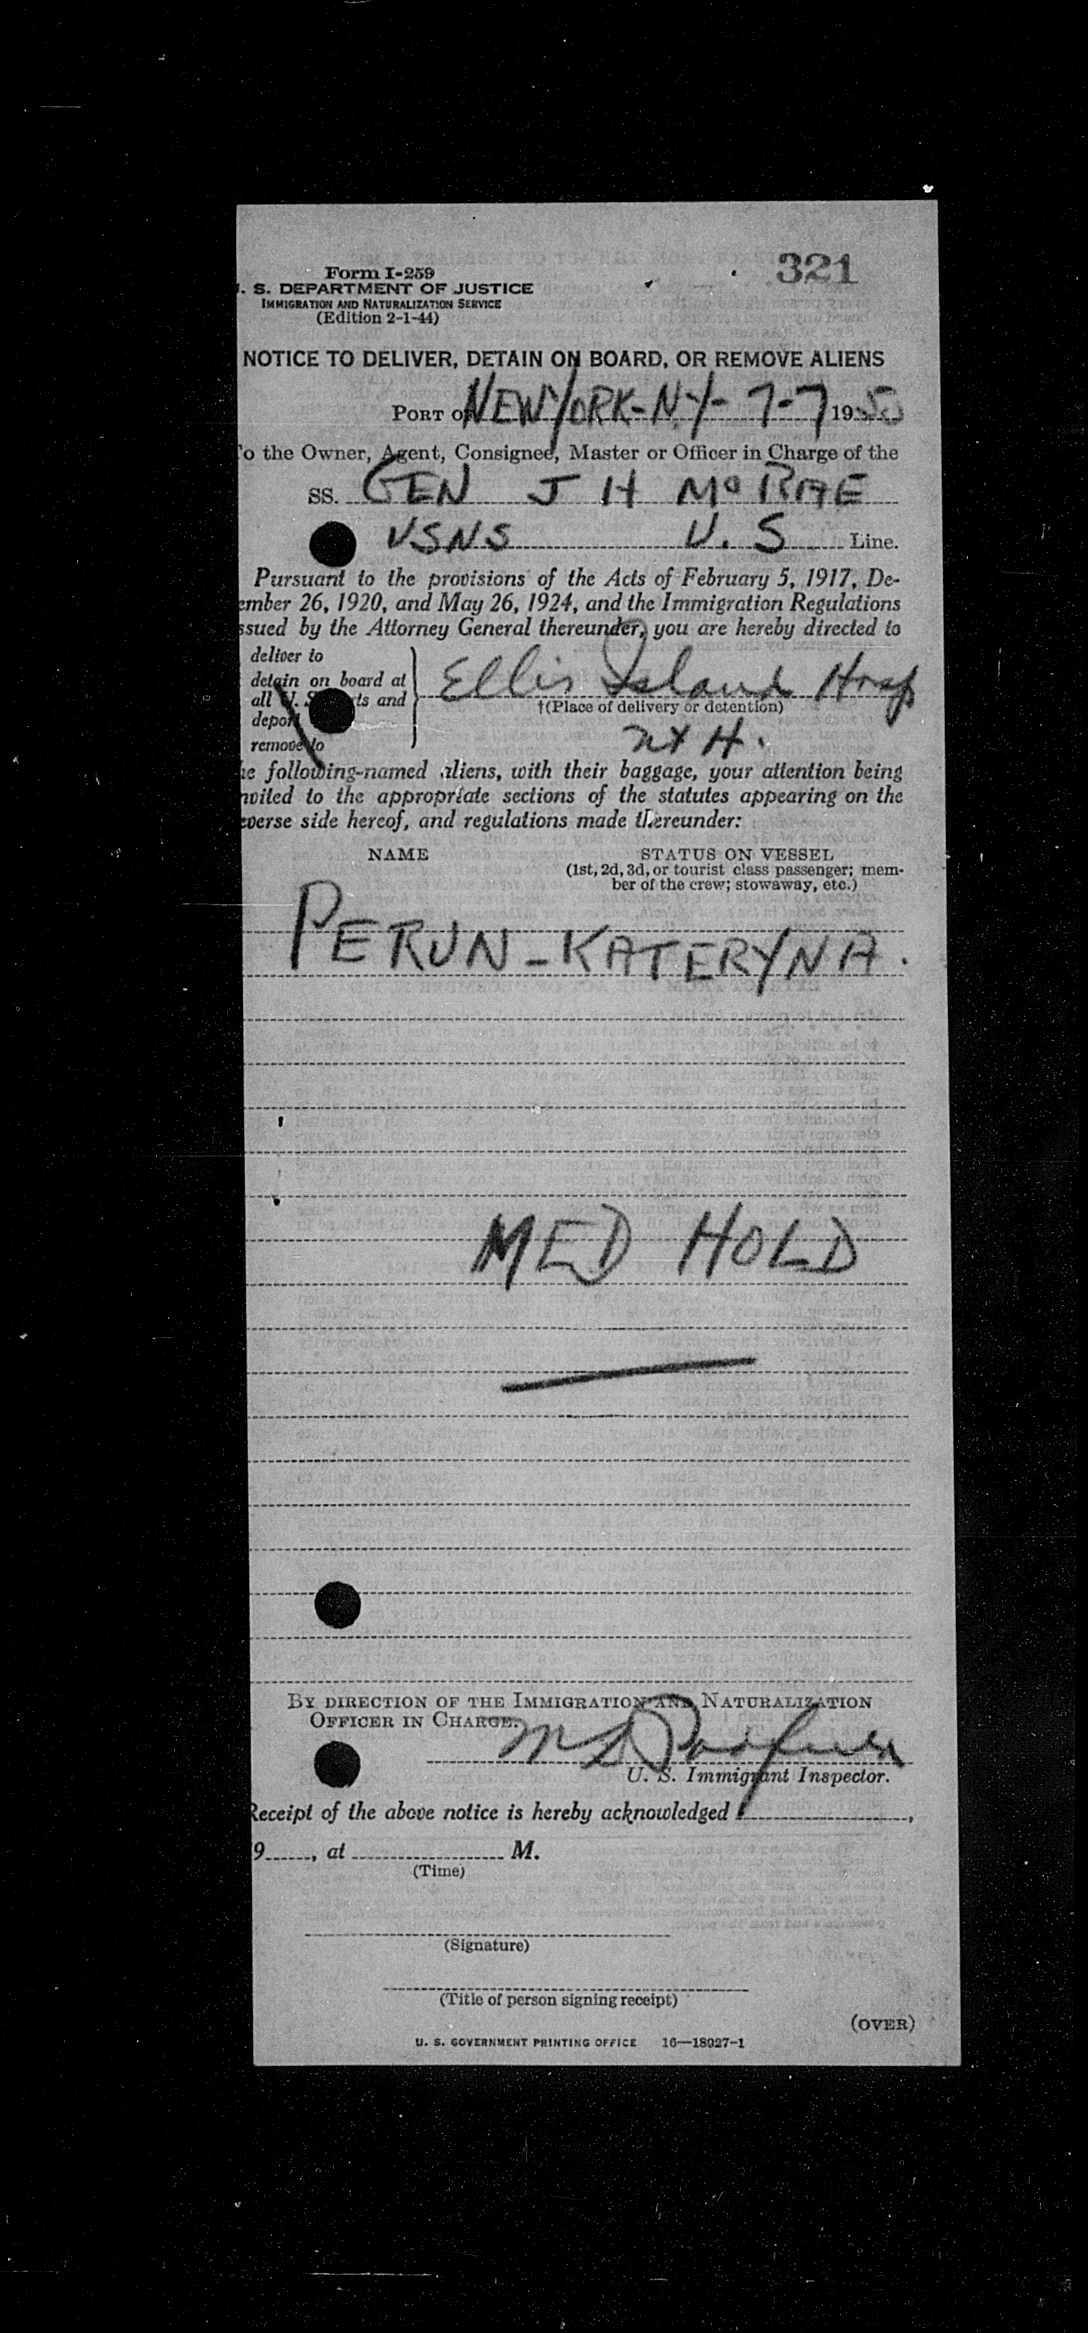 321
Form I-259
. S. DEPARTMENT OF JUSTICE
IMMIGRATION AND NATURALIZATION SERVICE
(Edition 2-1-44)
NOTICE TO DELIVER, DETAIN ON BOARD, OR REMOVE ALIENS
PORT OF NEW YORK-N.Y- 7-7 1950
To the Owner, Agent, Consignee, Master or Officer in Charge of the
SS. GEN J H McRAE
USNS U. S Line.
Pursuant to the provisions of the Acts of February 5, 1917, De-
ember 26, 1920, and May 26, 1924, and the Immigration Regulations
ssued by the Attorney General thereunder, you are hereby directed to
deliver to
detain on board at
all U. S. ports and
deport
remove to
Ellis Island Hosp
†(Place of delivery or detention)
he following-named aliens, with their baggage, your attention being
nvited to the appropriate sections of the statutes appearing on the
everse side hereof, and regulations made thereunder:
NAME STATUS ON VESSEL
(1st, 2d, 3d, or tourist class passenger; mem-
ber of the crew; stowaway, etc.)
PERUN-KATERYNA.
MED HOLD
BY DIRECTION OF THE IMMIGRATION AND NATURALIZATION
OFFICER IN CHARGE.
U. S. Immigrant Inspector.
Receipt of the above notice is hereby acknowledged ,
9 , at M.
(Time)
(Signature)
(Title of person signing receipt)
(OVER)
U. S. GOVERNMENT PRINTING OFFICE 16—18027-1